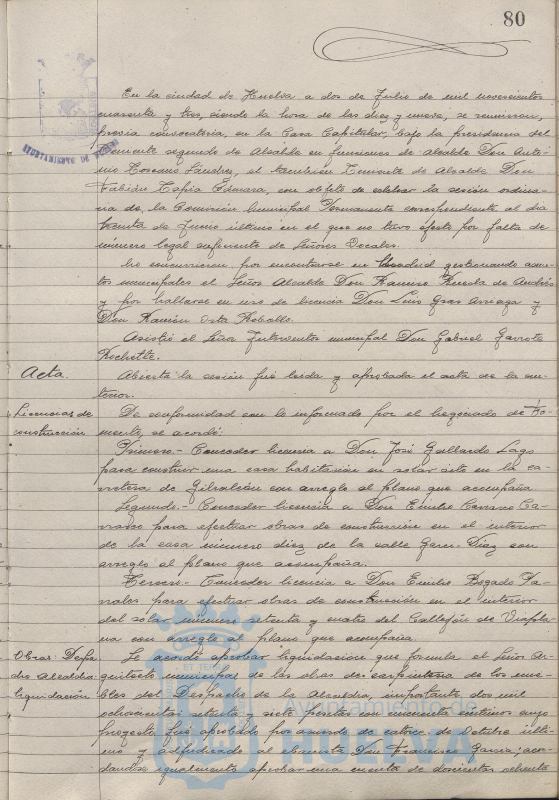 80
AYUNTAMIENTO DE HUELVA
En la ciudad de Huelva a dos de Julio de mil novecientos
cuarenta y tres, siendo la hora de las diez y nueve, se reunieron,
previa convocatoria, en la Casa Capitular, bajo la presidencia del
Teniente segundo de Alcalde en funciones de alcalde Don Anto-
nio Toscano Sánchez, el también Teniente de Alcalde Don
Fabián Tapia Gámara, con objeto de celebrar la sesión ordina-
ria de la Comisión Municipal Permanente correspondiente al dia
treinta de Junio último en el que no tuvo efecto por falta de
número legal suficiente de Señores Vocales.
No concurrieron por encontrarse en Madrid gestionando asun-
tos municipales el Señor Alcalde Don Ramiro Rueda de Andrés
y por hallarse en uso de licencia Don Luis Gras Arreaga y
Don Ramón Osta Rebollo.
Asistió el Señor Interventor municipal Don Gabriel Garrote
Rochette.
Acta.
Abierta la sesión fué leida y aprobada el acta de la an-
terior.
Licencias de
construcción
De conformidad con lo informado por el Negociado de Fo-
mento, se acordó:
Primero.- Conceder licencia a Don José Gallardo Lago
para construir una casa habitación en solar sito en la ca-
rretera de Gibraleón con arreglo al plano que acompaña.
Segundo.- Conceder licencia a Don Emilio Carrasco Ca-
rrasco para efectuar obras de construcción en el interior
de la casa número diez de la calle Garci-Diaz con
arreglo al plano que acompaña.
Tercero.- Conceder licencia a Don Emilio Bogado Pa-
rrales para efectuar obras de construcción en el interior
del solar número setenta y cuatro del Callejón de Viapla-
na con arreglo al plano que acompaña.
Obras: Despa-
cho Alcaldia:
liquidación.
Se acordó aprobar liquidacion que formula el Señor Ar-
quitecto municipal de las obras de carpinteria de los mue-
bles del Despacho de la Alcaldia, importante dos mil
ochocientas setenta y siete pesetas con cincuenta centimos cuyo
proyecto fué aprobado por acuerdo de catorce de Octubre últi-
mo y adjudicado al ebanista Don Francisco Garcia; acor-
dandose igualmente aprobar una cuenta de doscientas ochenta
Ayuntamiento de
HUELVA